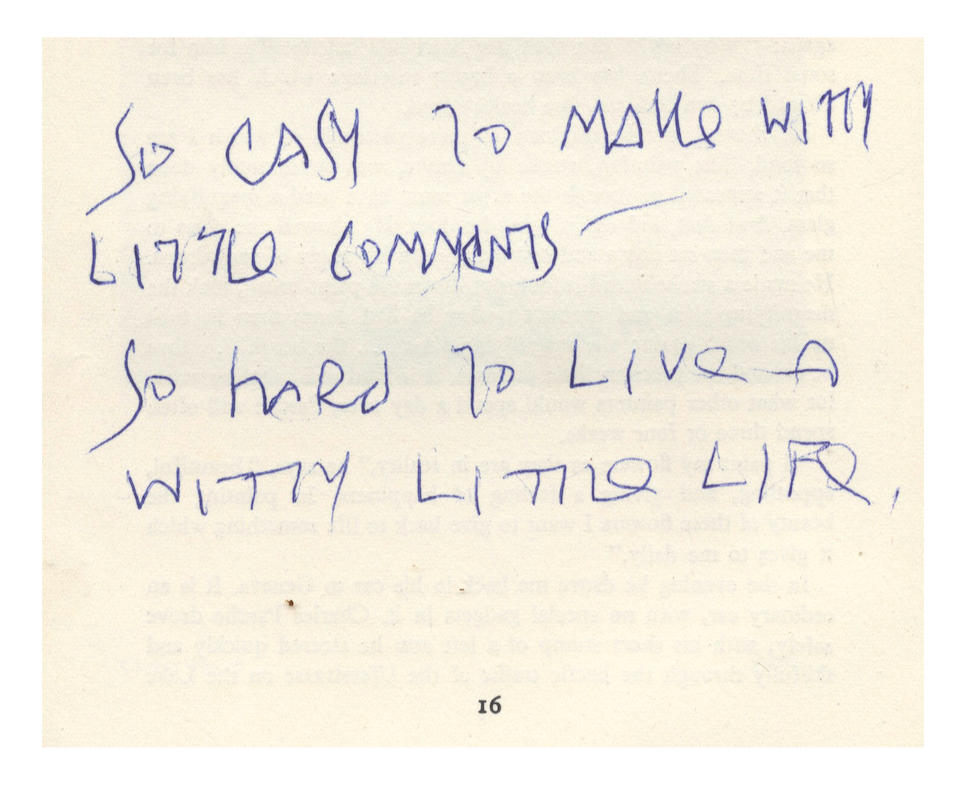 SO EASY TO MAKE WITTY
LITTLE COMMENTS —
SO HARD TO LIVE A
WITTY LITTLE LIFE.
16